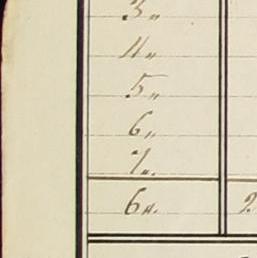 3 "
4 "
5 "
6 "
7 "
6 a. 2